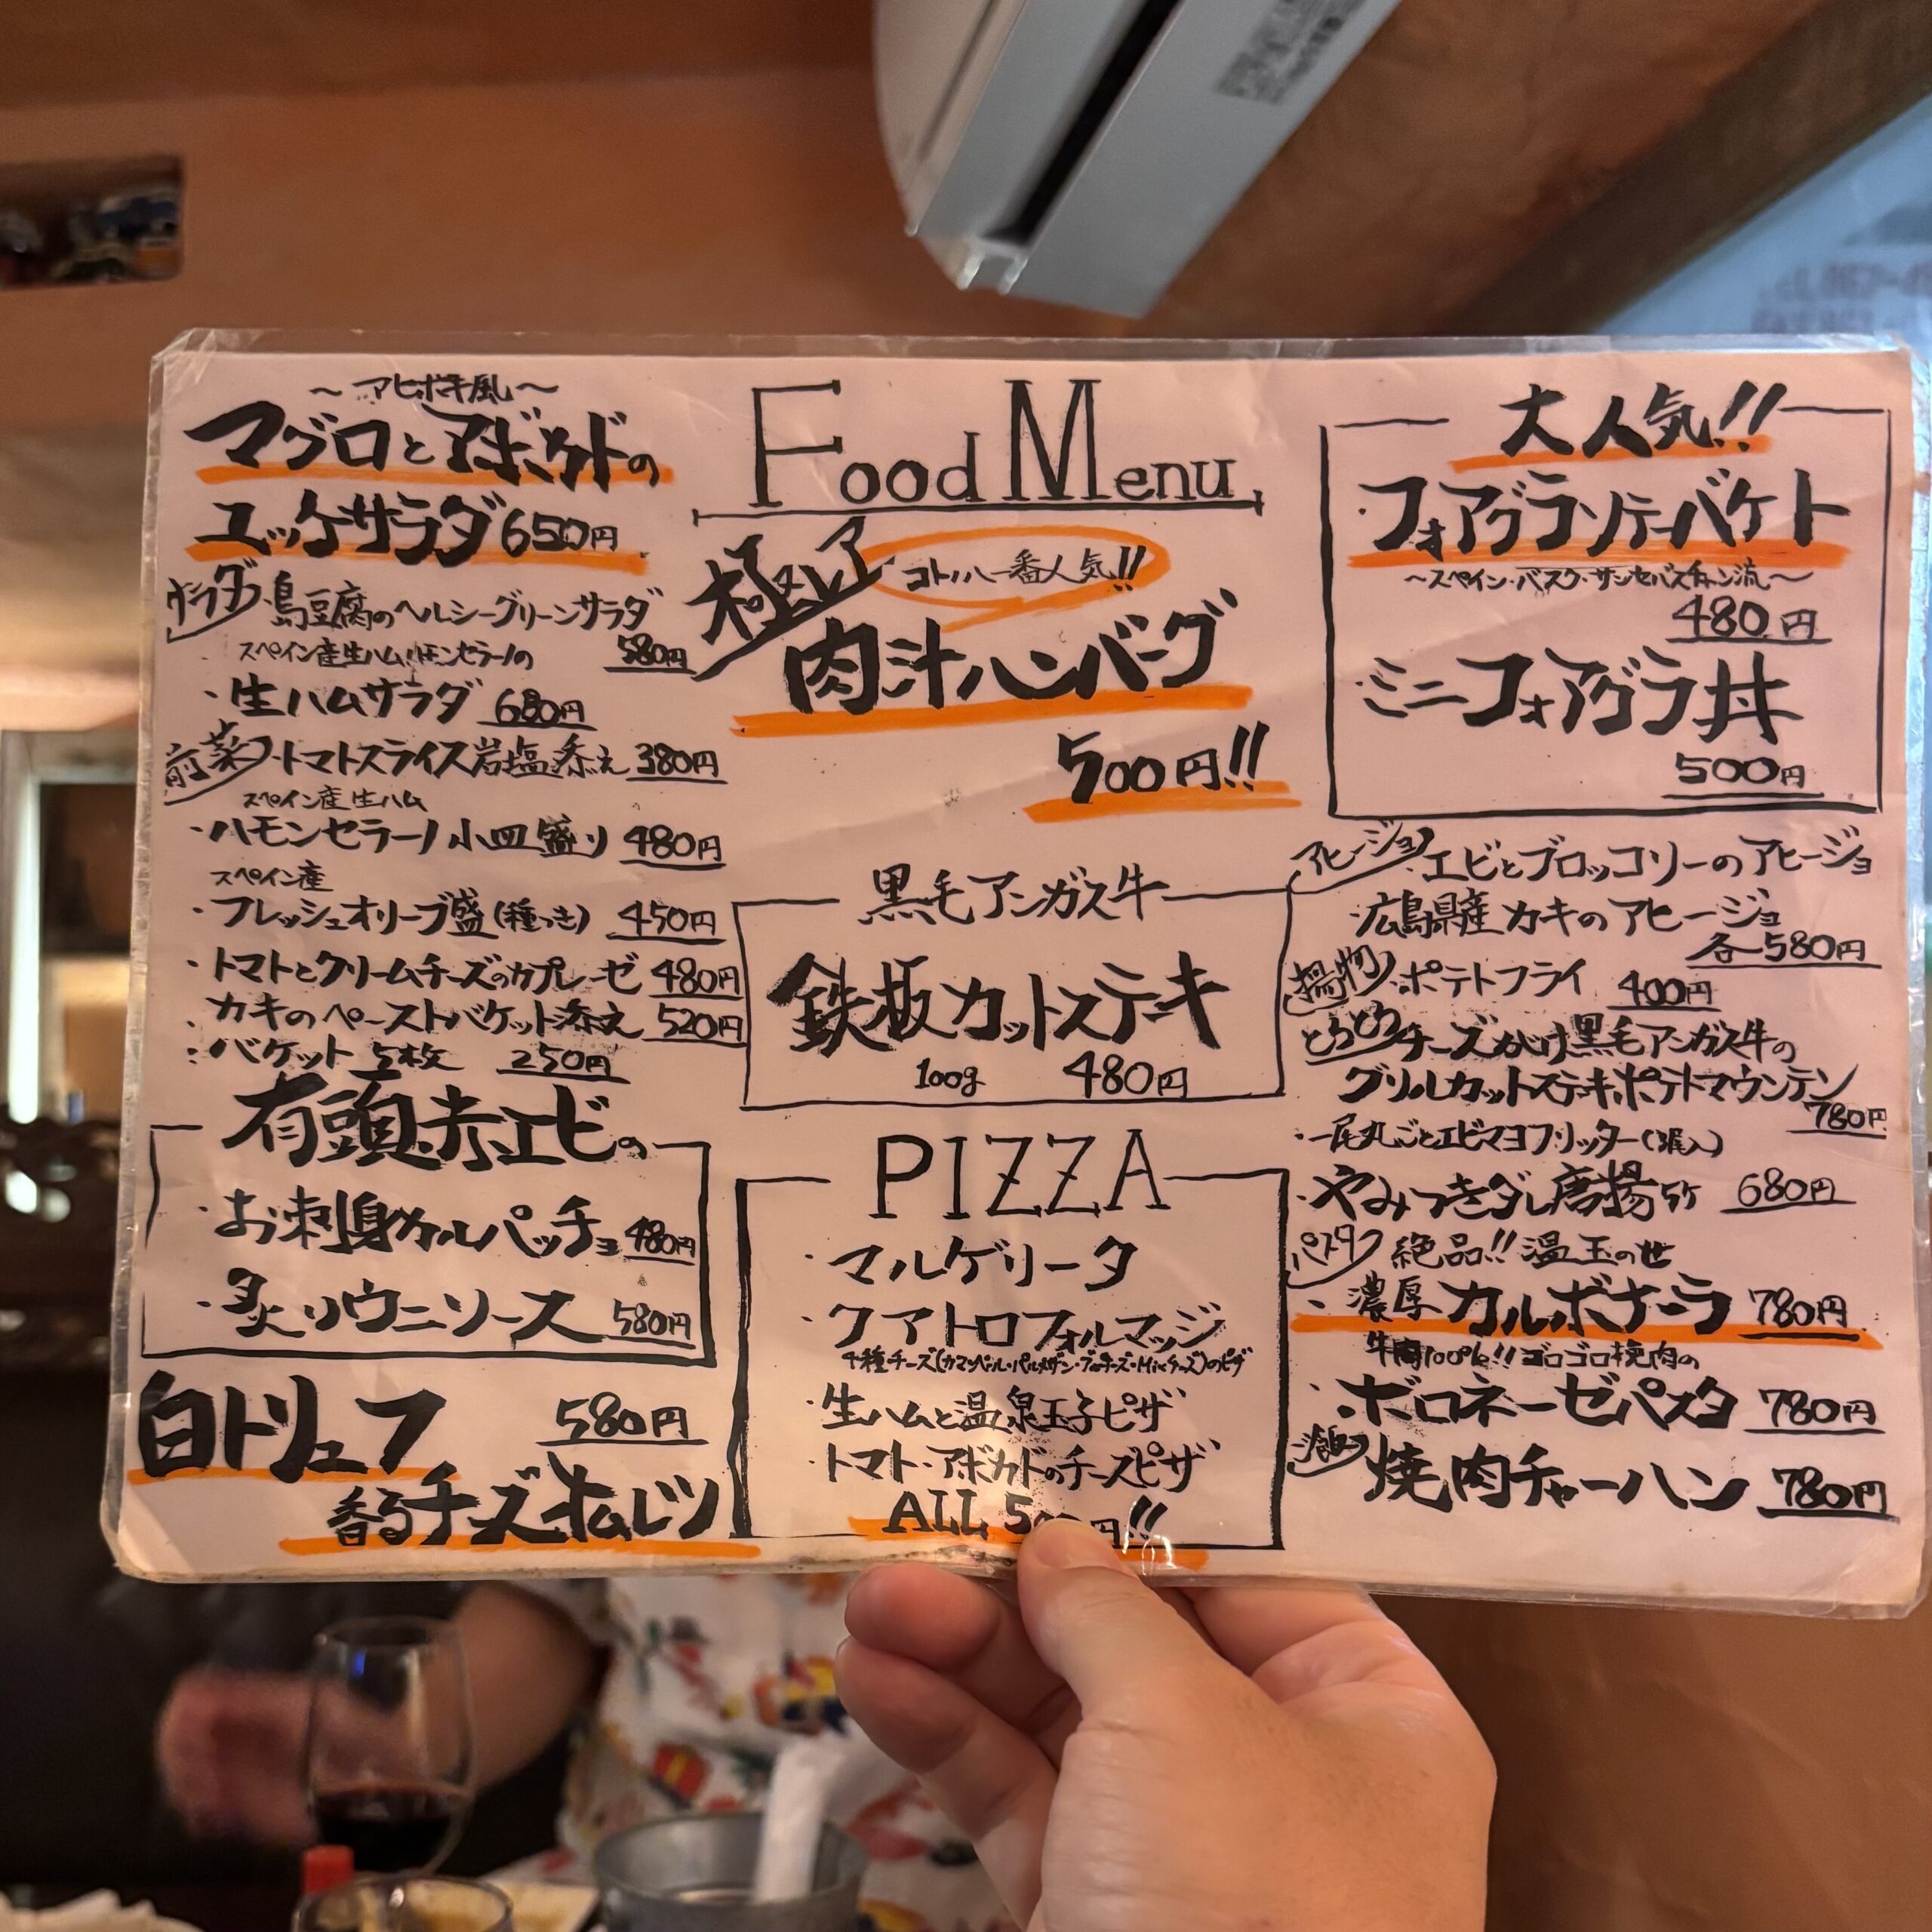 ～アヒポキ風～
マグロとアボカドの
ユッケサラダ 650円
サラダ ・島豆腐のヘルシーグリーンサラダ
580円
スペイン産生ハム ハモンセラーノの
・生ハムサラダ 680円
前菜 ・トマトスライス岩塩添え 380円
スペイン産生ハム
・ハモンセラーノ小皿盛り 480円
スペイン産
・フレッシュオリーブ盛(種つき) 450円
・トマトとクリームチーズのカプレーゼ 480円
・カキのペーストバケット添え 520円
・バケット5枚 250円
有頭赤エビの
・お刺身カルパッチョ 480円
・炙りウニソース 580円
白トリュフ 580円
香るチーズオムレツ
Food Menu
極レア
コトノハ一番人気!!
肉汁ハンバーグ
500円!!
黒毛アンガス牛
鉄板カットステキ
100g 480円
PIZZA
・マルゲリータ
・クアトロフォルマッジ
4種チーズ(カマンベール・パルメザン・ブルーチーズ・Mixチーズ)のピザ
・生ハムと温泉玉子ピザ
・トマト・アボカドのチーズピザ
ALL 円!!
大人気!!
・フォアグラソテーバケト
～スペイン・バスク・サンセバスチャン流～
480円
・ミニフォアグラ丼
500円
アヒージョ ・エビとブロッコリーのアヒージョ
・広島県産カキのアヒージョ
各580円
揚物 ・ポテトフライ 400円
とろとろチーズがけ黒毛アンガス牛の
グリルカットステキポテトマウンテン
780円
・一尾丸ごとエビマヨフリッター(3尾入)
・やみつきダレ唐揚5ケ 680円
パスタ 絶品!!温玉のせ
・濃厚カルボナーラ 780円
牛肉100%!!ゴロゴロ挽肉の
・ボロネーゼパスタ 780円
焼肉チャーハン 780円